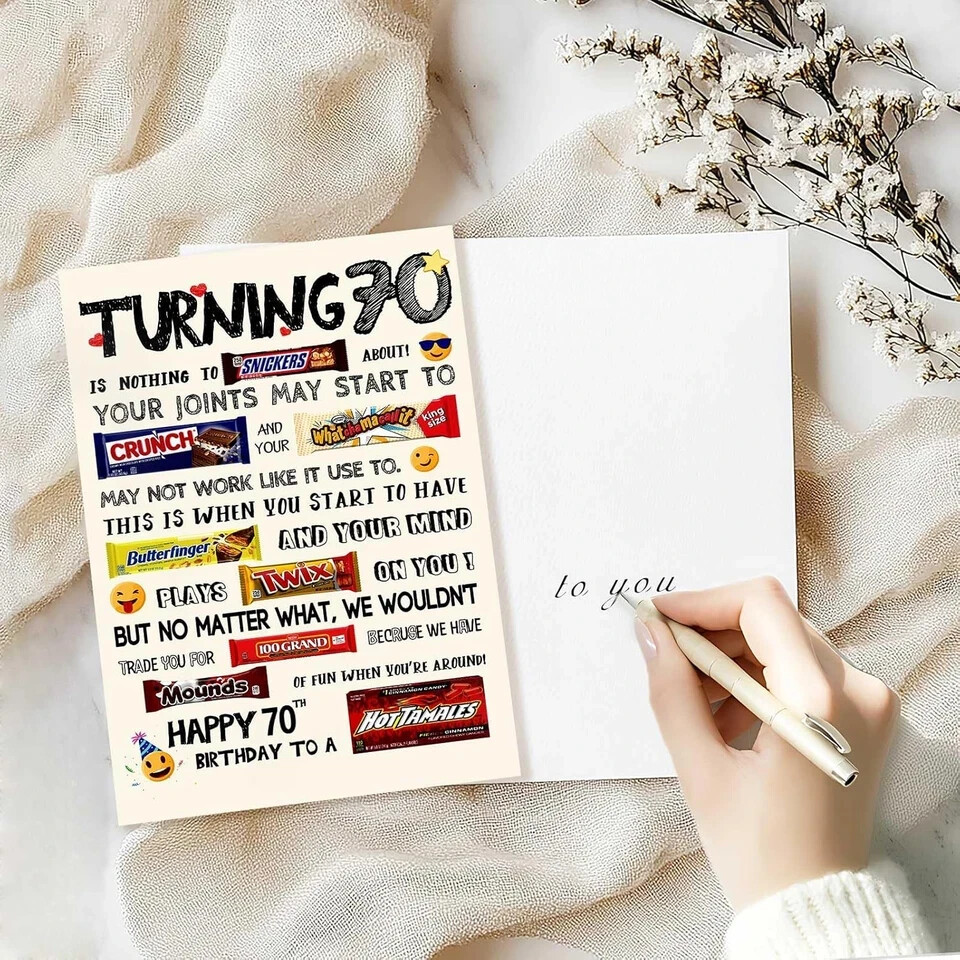 TURNING 70
IS NOTHING TO SNICKERS ABOUT!
YOUR JOINTS MAY START TO
CRUNCH AND YOUR Whatchamacallit king size
MAY NOT WORK LIKE IT USE TO.
THIS IS WHEN YOU START TO HAVE
Butterfinger AND YOUR MIND
PLAYS TWIX ON YOU !
BUT NO MATTER WHAT, WE WOULDN'T
TRADE YOU FOR 100 GRAND BECAUSE WE HAVE
Mounds OF FUN WHEN YOU'RE AROUND!
HAPPY 70TH
BIRTHDAY TO A HOT TAMALES
CINNAMON CANDY
FIERCE CINNAMON
to you